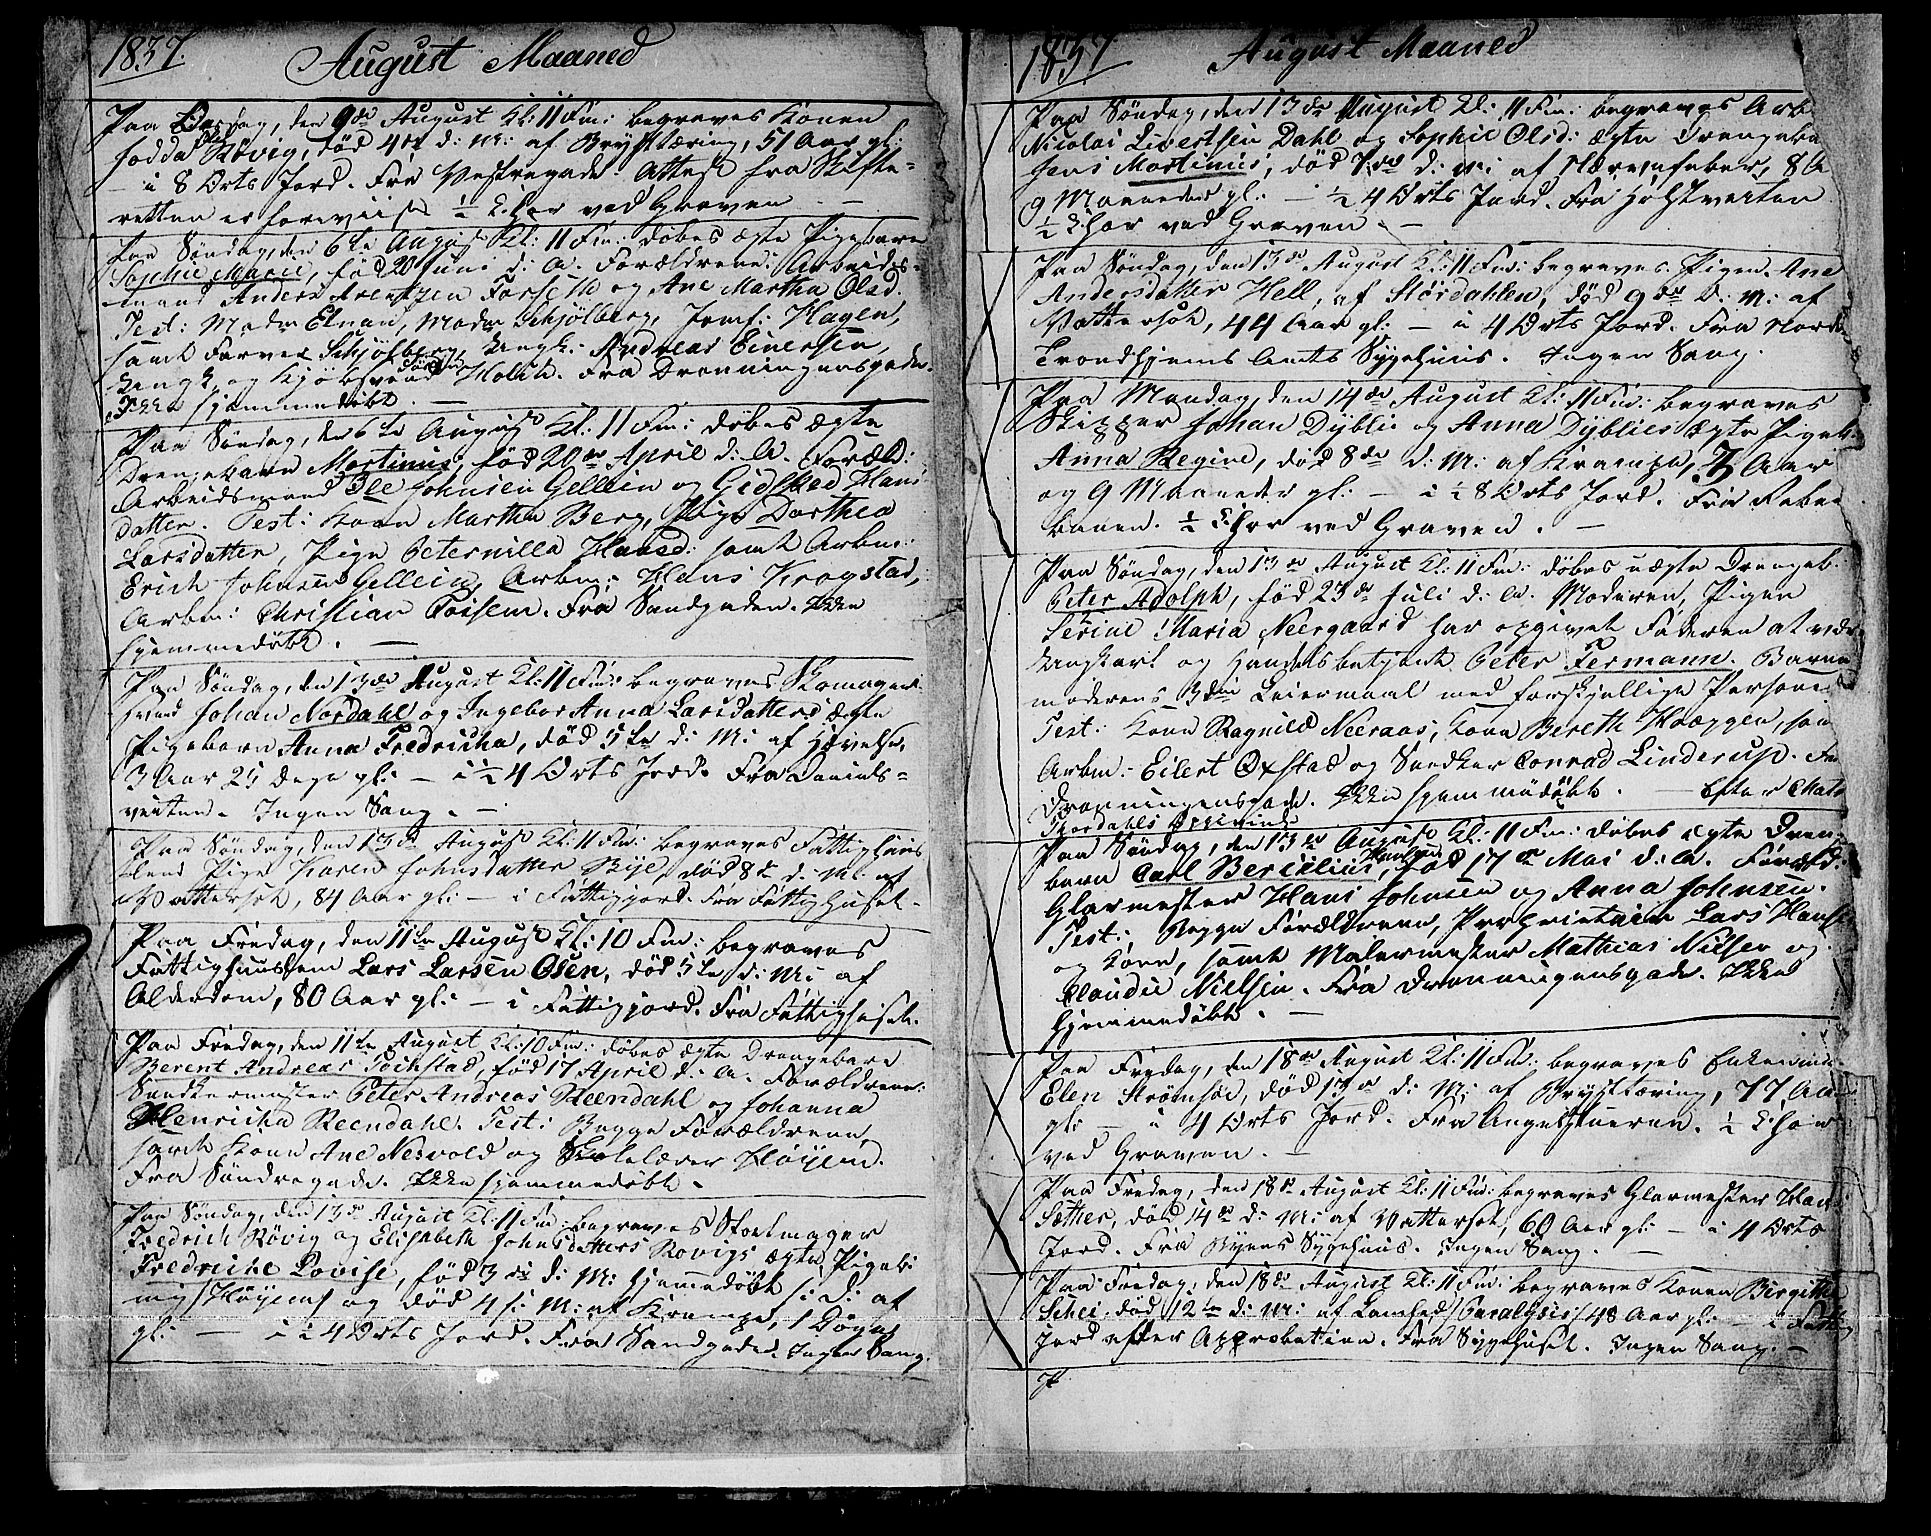 1837. August Maaned
Paa Onsdag, den 9de August Kl: 11 Fm: begraves Konen
Hodda Røvig, død 4de d: M: af Brysttæring, 51 Aar gl:
— i 8 Orts Jord. Fra Vestregade. Attest fra Skifte-
retten er foreviist ½ Chor ved Graven —
Paa Søndag, den 6te August Kl: 11 Fm: døbes ægte Pigebarn
Sophie Marie, fød 20 Juni d: A. Forældrene: Arbeids-
mand Anders Arentzen Forseth og Ane Martha Olsd.
Test: Madm Elnan, Madm Schjølberg, Jomf: Hagen,
samt Farver Schjølberg, Ungk: Andreas Einersen,
Ungk. og Kjøbsvend Holth. Fra Dronningensgade.
Ikke hjemmedøbt. —
Paa Søndag, den 6te August Kl: 11 Fm: døbes ægte
Drengebarn Martinus, fød 20de April d: A. Foræld:
Arbeidsmand Ole Johnsen Gellein og Gidsked Hans
datter. Test: Kone Martha Berg, Pige Dorthea
Larsdatter, Pige Peternilla Hansd: samt Arbm:
Erich Johnsen Gellein, Arbm: Hans Krogstad,
Arbm: Christian Poisem. Fra Sandgaden. Ikke
hjemmedøbt. —
Paa Søndag, den 13de August Kl: 11 Fm: begraves Skomager
svend Johan Nordahl og Ingebor Anna Larsdatters ægte
Pigebarn Anna Fredricha, død 5te d: M: af Hævelse,
3 Aar 25 Dage gl: — i ½ 4 Orts Jord. Fra Daniels-
veiten. Ingen Sang. —
Paa Søndag, den 13de August Kl: 11 Fm: begraves Fattighuus
lem Pige Karen Johnsdatter Bye, død 8de d: M: af
Vattersot, 84 Aar gl: — i Fattigjord. Fra Fattighuset. -
Paa Fredag, den 11te August Kl: 10 Fm: begraves
Fattighuuslem Lars Larsen Osen, død 5te d: M: af
Alderdom, 80 Aar gl: — i Fattigjord. Fra Fattighuset.
Paa Fredag, den 11te August Kl: 10 Fm: døbes ægte Drengebarn
Berent Andreas Sochstad, fød 17 April d: A. Forældrene:
Snedkermester Peter Andreas Reendahl og Johanna
Henricha Reendahl. Test: Begge Forældrene,
samt Kone Ane Nesvold og Skolelærer Høyem.
Fra Søndregade. Ikke hjemmedøbt. -
Paa Søndag, den 13de August Kl: 11 Fm: begraves Stoelmager
Fredrich Røvig og Elisabeth Johnsdatters Røvigs ægte Pigeb:
Fredriche Lovise, fød 3die d: M: hjemmedøbt s: D: af
mig /Høyem/ og død 4 s: M: af Krampe, 1 Døgn
gl: — i ½ 4 Orts Jord. Fra Sandgaden. Ingen Sang.
1837 August Maaned
Paa Søndag, den 13de August Kl: 11 Fm: begraves Arb
Nicolai Livertsen Dahl og Sophie Olsd: ægte Drengeba
Jens Martinus, død 7de d: M: af Nervefeber, 8 A
9 Maaneder gl: — i ½ 4 Orts Jord. Fra Holstveiten
½ Chor ved Graven. —
Paa Søndag, den 13de August Kl: 11 Fm: begraves Pigen Ane
Andersdatter Hell, af Størdahlen, død 9de d: M: af
Vattersot, 44 Aar gl: — i 4 Orts Jord. Fra Nordr
Trondhjems Amts Sygehuus. Ingen Sang.
Paa Mandag, den 14de August Kl: 11 Fm: begraves
Skipper Johan Dyblie og Anna Dyblies ægte Pigeb:
Anna Regine, død 8de d: M: af Krampe, 3 Aar
og 9 Maaneder gl: — i ½ 8 Orts Jord. Fra Reber
banen. ½ Chor ved Graven. —
Paa Søndag, den 13de August Kl: 11 Fm: døbes uægte Drengeb.
Peter Adolph, fød 23de Juli d: A. Moderen, Pigen
Serine Maria Neergaard har opgivet Faderen at være
Ungkarl og Handelsbetjent Peter Fermann. Barne
moderens 3die Leiermaal med forskjellige Persone
Test: Kone Ragnild Neeraas, Kone Bereth Kræggen, sam
Arbm: Eilert Oxstad og Snedker Conrad Linderup. Fra
Dronningensgade. Ikke hjemmedøbt. — Efter Mads
Thordahls Opgivende
Paa Søndag, den 13de August Kl: 11 Fm: døbes ægte Dren-
barn Carl Bercelius, fød 17de Mai d: A. Foræld:
Glarmester Hans Johnsen og Anna Johnsen.
Test: Begge Forældrene, Proprietair Lars Hanse
og Kone, samt Malermester Mathias Nielsen og
Claudie Nielsen. Fra Dronningensgade. Ikke
hjemmedøbt. —
Paa Fredag, den 18de August Kl: 11 Fm: begraves Enkemad:
Elen Strømsøe, død 13de d: M: af Brysttæring, 77 Aa
gl: — i 4 Orts Jord. Fra Angeltrøen. ½ Chor
ved Graven. —
Paa Fredag, den 18de August Kl: 11 Fm: begraves Glarmester Hans
Sæther, død 14de d: M: af Vattersot, 60 Aar gl: — i 4 Orts
Jord. Fra Byens Sygehuus. Ingen Sang. —
Paa Fredag, den 18de August Kl: 11 Fm: begraves Konen Birgitte
Schei, død 12te d: M: af Lamhed /Paralysis/ 48 Aar gl: — i Fattig
Jord efter Approbation. Fra Sygehuset. Ingen Sang. —
P